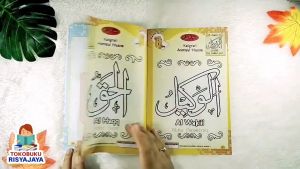 Kaligrafi
Asmaul Husna
الحق
Al Haqq
Kaligrafi
Asmaul Husna
الوكيل
Al Wakiil
TOKOBUKU
RISYAJAYA